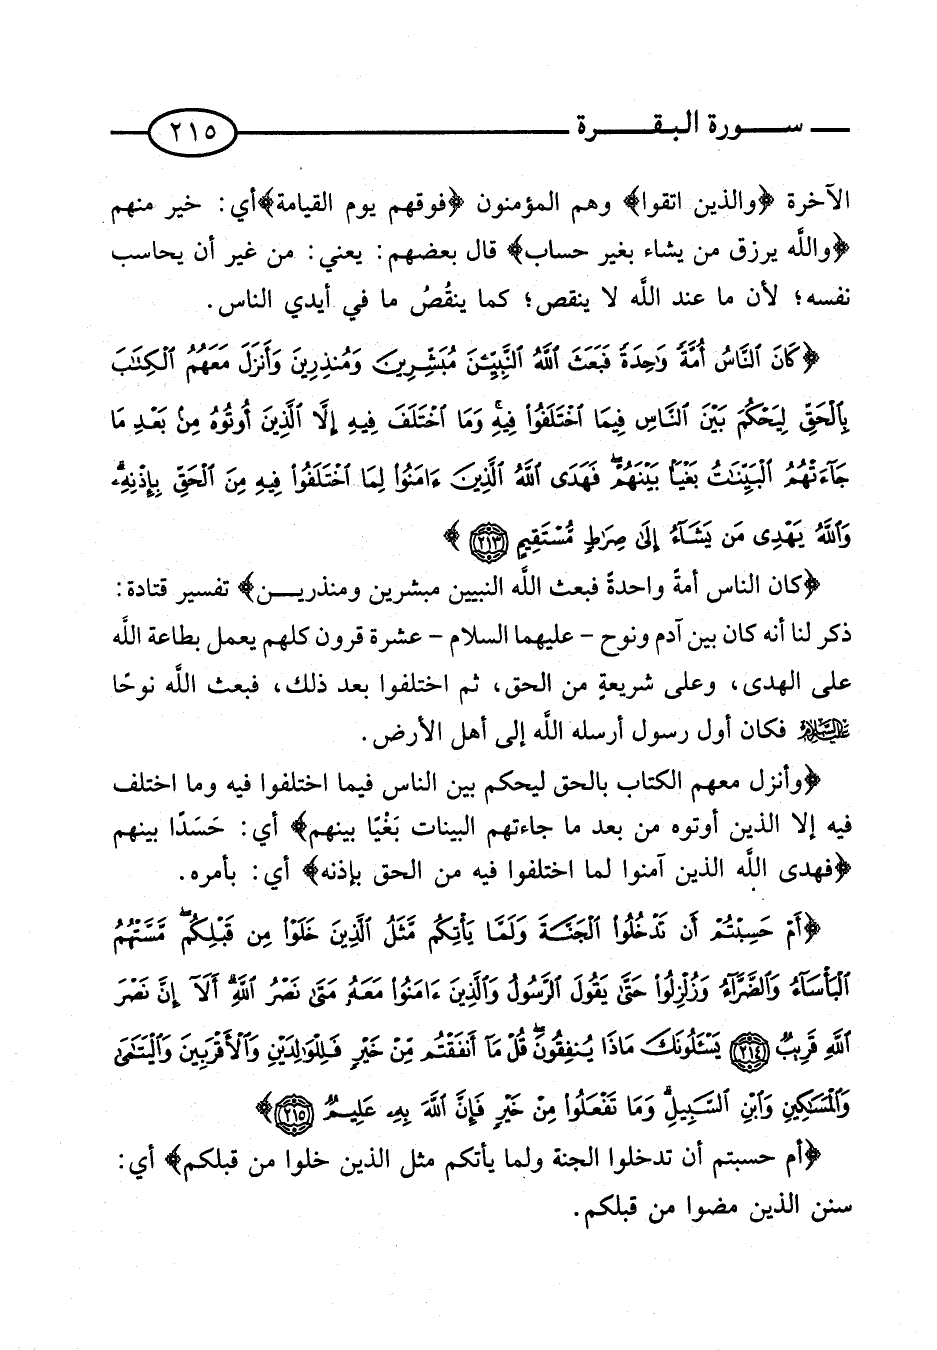 سورة البقرة ٢١٥
الآخرة ﴿والذين اتقوا﴾ وهم المؤمنون ﴿فوقهم يوم القيامة﴾ أي: خير منهم
﴿واللَّه يرزق من يشاء بغير حساب﴾ قال بعضهم: يعني: من غير أن يحاسب
نفسه؛ لأن ما عند اللَّه لا ينقص؛ كما ينقُصُ ما في أيدي الناس.
﴿كَانَ ٱلنَّاسُ أُمَّةً وَٰحِدَةً فَبَعَثَ ٱللَّهُ ٱلنَّبِيِّـۧنَ مُبَشِّرِينَ وَمُنذِرِينَ وَأَنزَلَ مَعَهُمُ ٱلْكِتَٰبَ
بِٱلْحَقِّ لِيَحْكُمَ بَيْنَ ٱلنَّاسِ فِيمَا ٱخْتَلَفُوا۟ فِيهِ ۚ وَمَا ٱخْتَلَفَ فِيهِ إِلَّا ٱلَّذِينَ أُوتُوهُ مِنۢ بَعْدِ مَا
جَآءَتْهُمُ ٱلْبَيِّنَٰتُ بَغْيًۢا بَيْنَهُمْ ۖ فَهَدَى ٱللَّهُ ٱلَّذِينَ ءَامَنُوا۟ لِمَا ٱخْتَلَفُوا۟ فِيهِ مِنَ ٱلْحَقِّ بِإِذْنِهِۦ ۗ
وَٱللَّهُ يَهْدِى مَن يَشَآءُ إِلَىٰ صِرَٰطٍ مُّسْتَقِيمٍ ٢١٣﴾
﴿كان الناس أمةً واحدةً فبعث اللَّه النبيين مبشرين ومنذريـــن﴾ تفسير قتادة:
ذكر لنا أنه كان بين آدم ونوح - عليهما السلام - عشرة قرون كلهم يعمل بطاعة اللَّه
على الهدى، وعلى شريعةٍ من الحق، ثم اختلفوا بعد ذلك، فبعث اللَّه نوحًا
عليه السلام فكان أول رسول أرسله اللَّه إلى أهل الأرض.
﴿وأنزل معهم الكتاب بالحق ليحكم بين الناس فيما اختلفوا فيه وما اختلف
فيه إلا الذين أوتوه من بعد ما جاءتهم البينات بَغْيًا بينهم﴾ أي: حَسَدًا بينهم
﴿فهدى اللَّه الذين آمنوا لما اختلفوا فيه من الحق بإذنه﴾ أي: بأمره.
﴿أَمْ حَسِبْتُمْ أَن تَدْخُلُوا۟ ٱلْجَنَّةَ وَلَمَّا يَأْتِكُم مَّثَلُ ٱلَّذِينَ خَلَوْا۟ مِن قَبْلِكُم ۖ مَّسَّتْهُمُ
ٱلْبَأْسَآءُ وَٱلضَّرَّآءُ وَزُلْزِلُوا۟ حَتَّىٰ يَقُولَ ٱلرَّسُولُ وَٱلَّذِينَ ءَامَنُوا۟ مَعَهُۥ مَتَىٰ نَصْرُ ٱللَّهِ ۗ أَلَآ إِنَّ نَصْرَ
ٱللَّهِ قَرِيبٌ ٢١٤ يَسْـَٔلُونَكَ مَاذَا يُنفِقُونَ ۖ قُلْ مَآ أَنفَقْتُم مِّنْ خَيْرٍ فَلِلْوَٰلِدَيْنِ وَٱلْأَقْرَبِينَ وَٱلْيَتَٰمَىٰ
وَٱلْمَسَٰكِينِ وَٱبْنِ ٱلسَّبِيلِ ۗ وَمَا تَفْعَلُوا۟ مِنْ خَيْرٍ فَإِنَّ ٱللَّهَ بِهِۦ عَلِيمٌ ٢١٥﴾
﴿أم حسبتم أن تدخلوا الجنة ولما يأتكم مثل الذين خلوا من قبلكم﴾ أي:
سنن الذين مضوا من قبلكم.